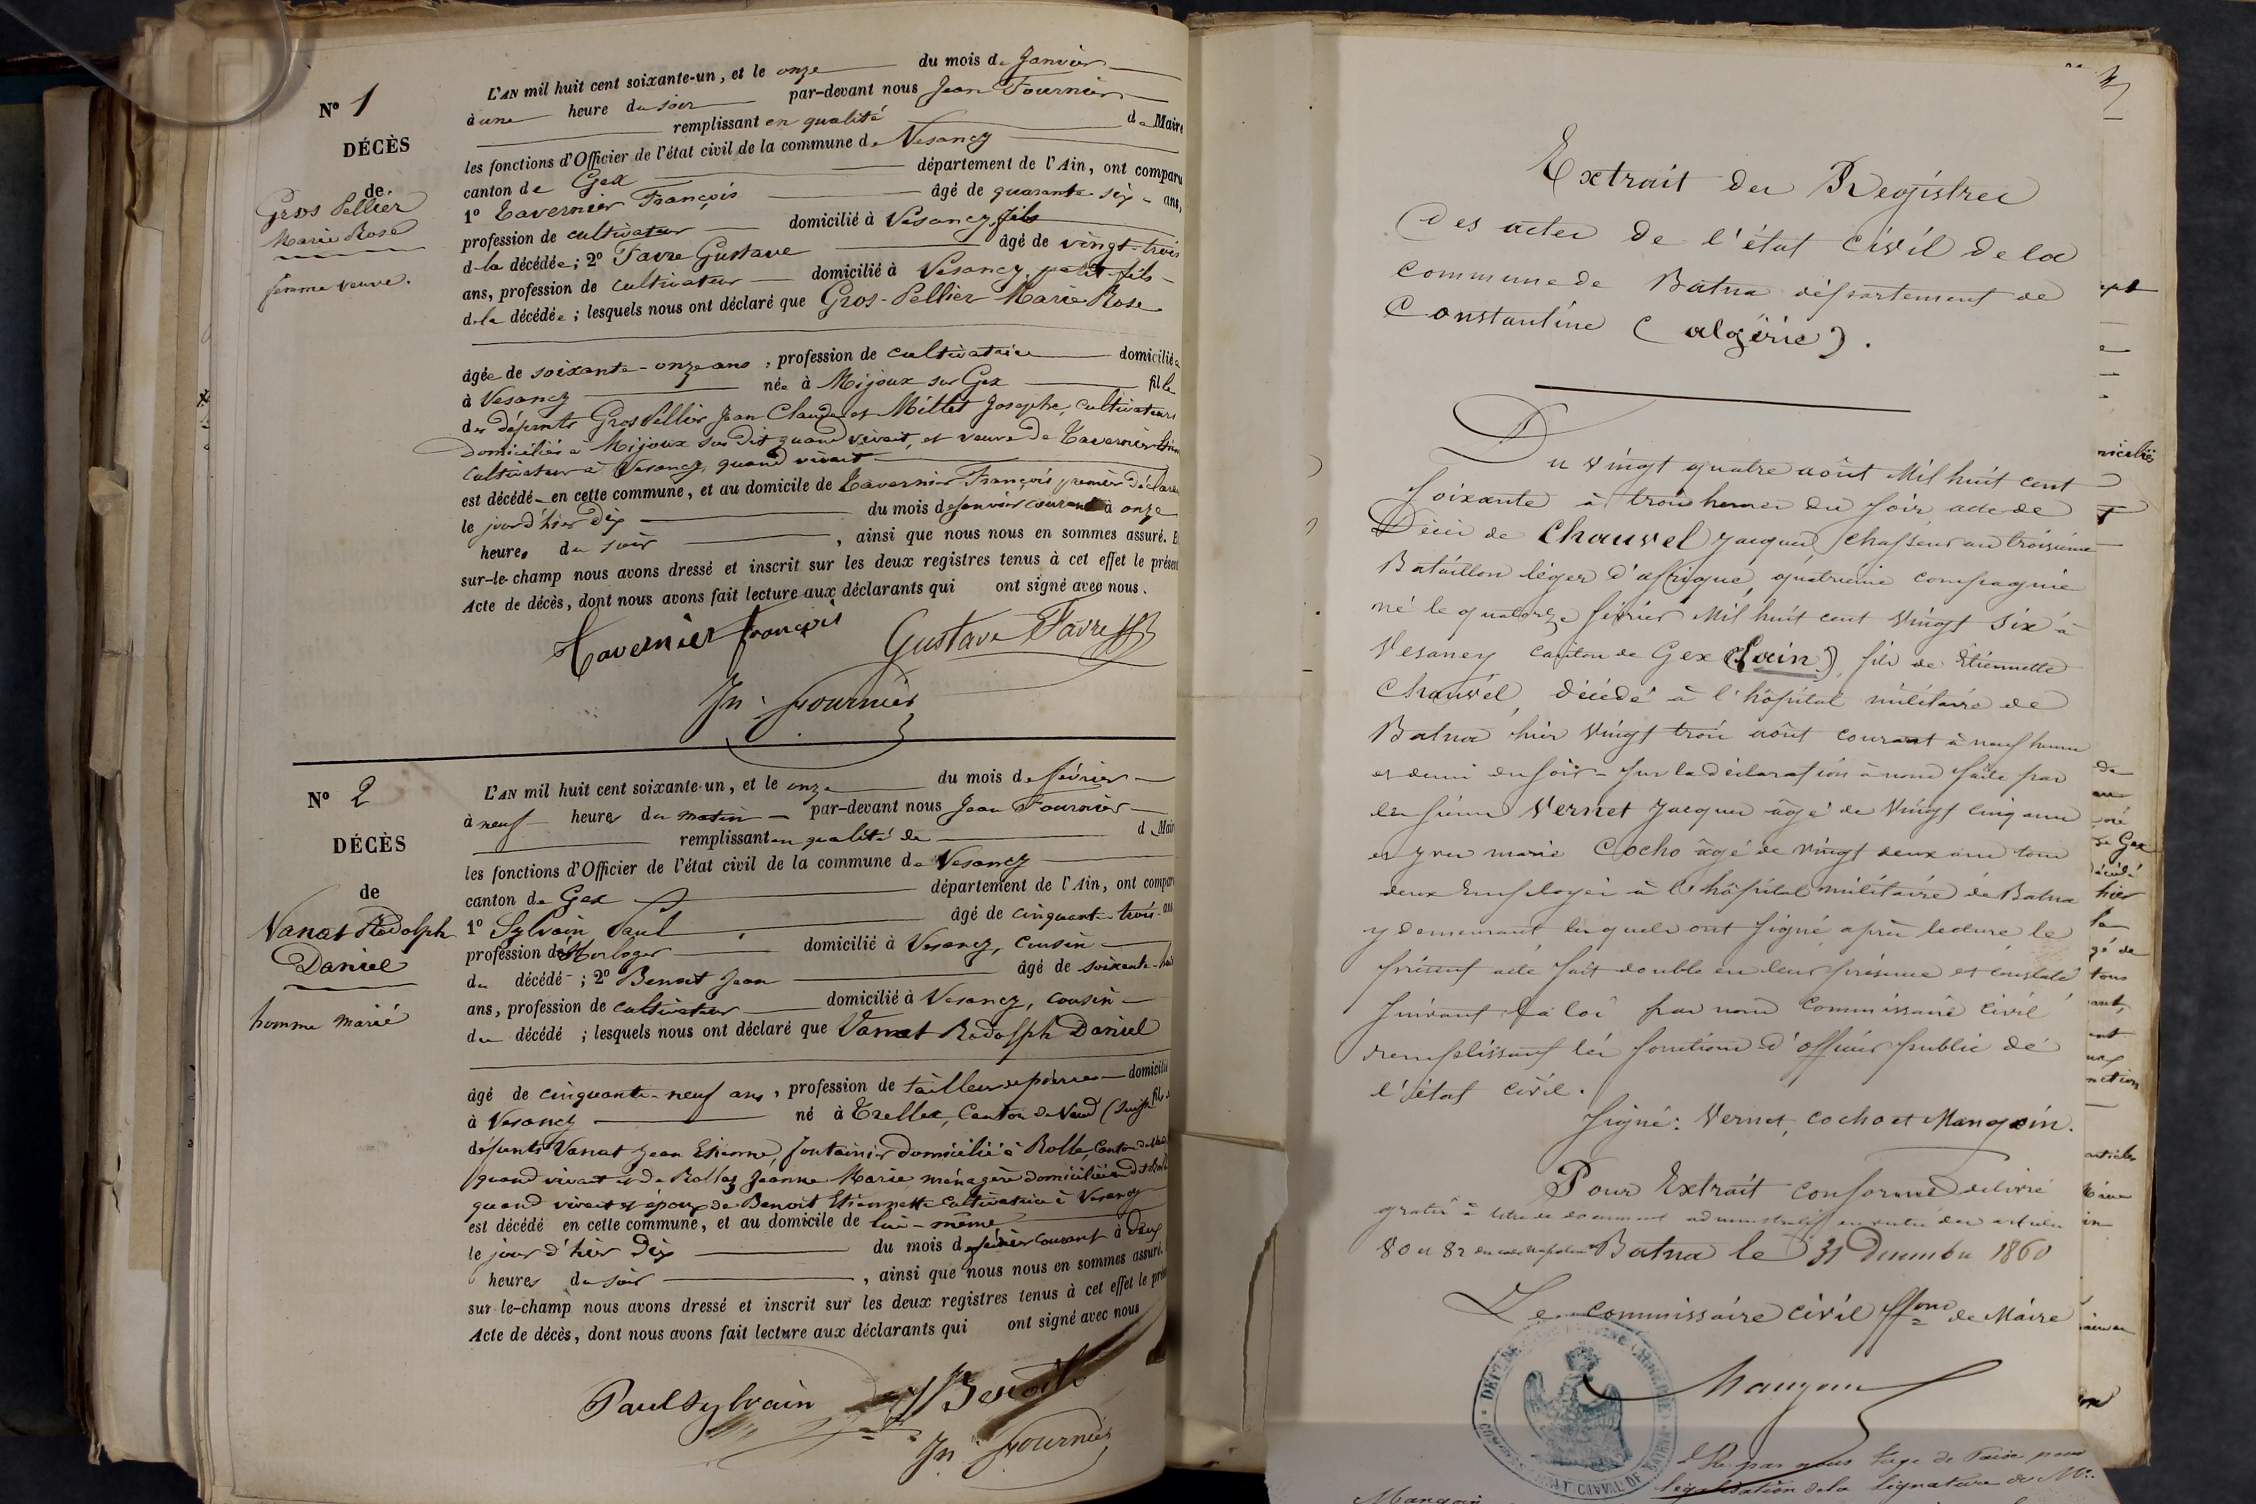 N° 1
DÉCÈS
de
Gros Pellier
Marie Rose
femme veuve.
L'AN mil huit cent soixante-un, et le onze du mois de Janvier
à une heure du soir par-devant nous Jean Fournier
remplissant en qualité de Maire
les fonctions d'Officier de l'état civil de la commune de Vesancy
canton de Gex département de l'Ain, ont comparu
1° Tavernier François âgé de quarante-six ans,
profession de cultivateur domicilié à Vesancy, fils
d la décédée; 2° Favre Gustave âgé de vingt-trois
ans, profession de cultivateur domicilié à Vesancy, petit-fils
de la décédée; lesquels nous ont déclaré que Gros-Pellier Marie Rose
âgée de soixante-onze ans, profession de cultivatrice domiciliée
à Vesancy née à Mijoux sur Gex fille
des défunts Gros Pellier Jean Claude et Millet Josephe, cultivateurs
domiciliés à Mijoux sus dit quand vivait, et veuve de Tavernier
cultivateur à Vesancy, quand vivait
est décédée en cette commune, et au domicile de Tavernier François premier déclarant
le jour d'hier dix du mois de Janvier courant à onze
heures du soir, ainsi que nous nous en sommes assuré. E
sur-le-champ nous avons dressé et inscrit sur les deux registres tenus à cet effet le présent
Acte de décès, dont nous avons fait lecture aux déclarants qui ont signé avec nous.
Tavernier françois Gustave Favre
Jn. Fournier
N° 2
DÉCÈS
de
Vanat Rodolph
Daniel
homme marié
L'AN mil huit cent soixante-un, et le onze du mois de février
à neuf heures du matin par-devant nous Jean Fournier
remplissant en qualité de d Mair
les fonctions d'Officier de l'état civil de la commune de Vesancy
canton de Gex département de l'Ain, ont compar
1° Sylvain Paul âgé de cinquante-trois ans
profession d'Horloger domicilié à Vesancy, cousin
du décédé; 2° Benoit Jean âgé de soixante-huit
ans, profession de cultivateur domicilié à Vesancy, cousin
du décédé; lesquels nous ont déclaré que Vanat Rodolph Daniel
âgé de cinquante-neuf ans, profession de tailleur de pierres domicilié
à Vesancy né à Trellex, Canton de Vaud (Suisse fil
défunts Vanat Jean Etienne, fontainier domicilié à Rolle, Canton de
quand vivait et de Rollaz Jeanne Marie ménagère domiciliée
quand vivait et époux de Benoit Etiennette cultivatrice à Vesancy
est décédé en cette commune, et au domicile de lui-même
le jour d'hier dix du mois de février courant à deux
heures du soir, ainsi que nous nous en sommes assuré.
sur-le-champ nous avons dressé et inscrit sur les deux registres tenus à cet effet le prés
Acte de décès, dont nous avons fait lecture aux déclarants qui ont signé avec nous
Paul Sylvain Benoit
Jn. Fournier
Extrait des Registres
des actes de l'état civil de la
commune de Batna département de
Constantine (algérie).
Du vingt quatre août Mil huit cent
soixante à trois heures du soir acte de
Décès de Chauvel Jacques, chasseur au troisième
Bataillon léger d'afrique, quatrième compagnie
né le quatorze février Mil huit cent vingt six à
Vesancy canton de Gex (l'ain), fils de Etiennette
Chauvel, décédé à l'hôpital militaire de
Batna hier vingt trois août courant à neuf heures
et demi du soir - Sur la déclaration à nous faite par
les sieurs Vernet Jacques âgé de vingt cinq ans
et yves marie Cocho âgé de vingt deux ans tous
deux employés à l'hôpital militaire de Batna
y demeurant lesquels ont signé après lecture le
présent acte fait double en leur présence et constaté
suivant la loi par nous Commissaire civil
remplissant les fonctions d'officier public de
l'état civil.
Signé: Vernet, Cocho et Mangoin.
Pour Extrait conforme délivré
gratis à titre de document administratif en vertu des articles
80 et 82 du code Napoléon Batna le 31 Décembre 1860
Le commissaire civil ffons de Maire
Mangoin
Vu par nous Juge de Paix pour
légalisation de la signature de Mr.
Mangoin